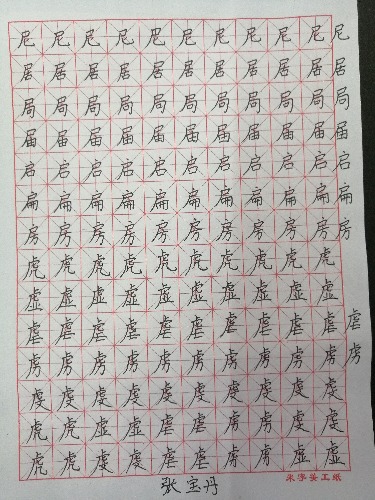 尼尼尼尼尼尼尼尼尼尼尼
居居居居居居居居居居居
局局局局局局局局局局局
届届届届届届届届届届届
启启启启启启启启启启启
扁扁扁扁扁扁扁扁扁扁扁
房房房房房房房房房房房
虎虎虎虎虎虎虎虎虎虎
虚虚虚虚虚虚虚虚虚虚
虐虐虐虐虐虐虐虐虐虐虐
虏虏虏虏虏虏虏虏虏虏虏
虔虔虔虔虔虔虔虔虔虔
虎虎虚虚虐虐虏虏虔虔
虎虎虏虏虔虔虏虏虚虚
米字头工纸
张宝丹